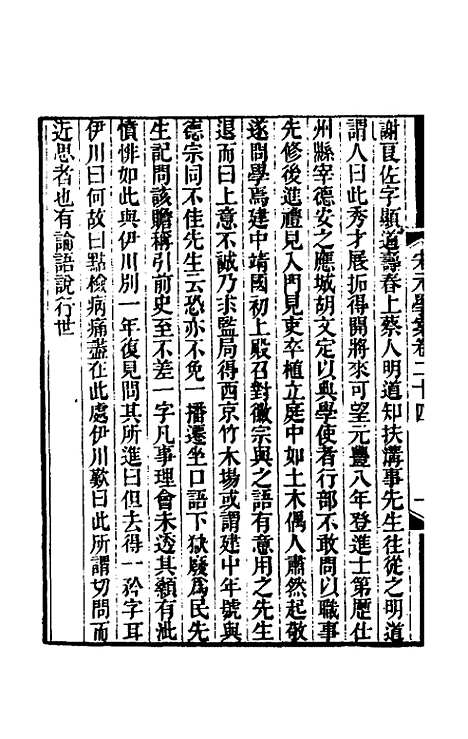 謝良佐字顯道壽春上蔡人明道知扶溝事先生往從之明道
謂人曰此秀才展拓得開將來可望元豐八年登進士第歷仕
州縣宰德安之應城胡文定以典學使者行部不敢問以職事
先修後進禮見入門見吏卒植立庭中如土木偶人肅然起敬
遂問學焉建中靖國初上殿召對徽宗與之語有意用之先生
退而曰上意不誠乃求監局得西京竹木場或謂建中年號與
德宗同不佳先生云恐亦不免一播遷坐口語下獄廢為民先
生記問該贍稱引前史至不差一字凡事理會未透其顙有泚
憤悱如此與伊川別一年復見問其所進曰但去得一矜字耳
伊川曰何故曰點檢病痛盡在此處伊川歎曰此所謂切問而
近思者也有論語說行世
宋元學案卷二十四
一